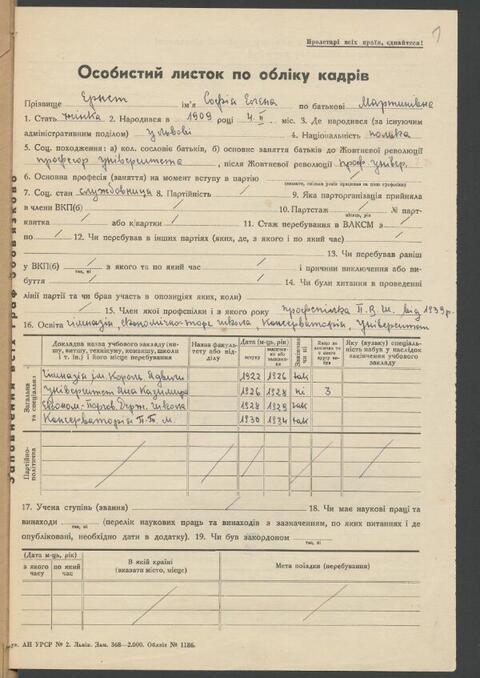 7
Пролетарі всіх країн, єднайтеся!
Особистий листок по обліку кадрів
Прізвище Ернст ім'я Софія Євгена по батькові Мартинівна
1. Стать жінка 2. Народився в 1909 році 4. II міс. 3. Де народився (за існуючим
адміністративним поділом) у Львові 4. Національність полька
5. Соц. походження: а) кол. сословіє батьків, б) основне заняття батьків до Жовтневої революції
професор університета, після Жовтневої революції проф. універ.
6. Основна професія (заняття) на момент вступу в партію
7. Соц. стан службовниця 8. Партійність / 9. Яка парторганізація прийняла
в члени ВКП(б) / 10. Партстаж / № парт-
місяць, рік
квитка / або к/картки / 11. Стаж перебування в ВЛКСМ з
по / 12. Чи перебував в інших партіях (яких, де, з якого і по який час)
/ 13. Чи перебував раніш
у ВКП(б) / з якого та по який час / і причини виключення або ви-
так, ні
буття / 14. Чи були хитання в проведенні
лінії партії та чи брав участь в опозиціях яких, коли)
/ 15. Член якої профспілки і з якого року профспілка П.В.Ш. від 1939 р.
16. Освіта гімназія, економічно-торг. школа, Консерваторія, Університет
Загальна та спеціальна
Докладна назва учбового закладу (ви-
шу, втишу, технікуму, комвишу, школи
і т. ін.) і його місце перебування
Назва факуль-
тету або від-
ділу
Дата (м-ць, рік)
вступу
Закінчив
чи ні
Яку (вузьку) спеціаль-
ність набув у наслідок
закінчення учбового
закладу
Гімназія ім. Короля Ядвіги 1922 1926 так
Університет Яна Казимира 1926 1928 ні 3
Економ.-Торгов. Держ. школа 1928 1929 так
Консерваторія П.Т.М. 1930 1934 так
Партійно-
політична
17. Учена ступінь (звання) / 18. Чи має наукові праці та
винаходи (перелік наукових праць та винаходів з зазначенням, по яких питаннях і де
так, ні
опубліковані, необхідно дати в додатку). 19. Чи був закордоном
так, ні
(Дата м-ць, рік)
з якого
часу
по який
час
В якій країні
(вказати місто, місце)
Мета поїздки (перебування)
АН УРСР № 2. Львів. Зам. 368—2.000. Обліт № 1186.